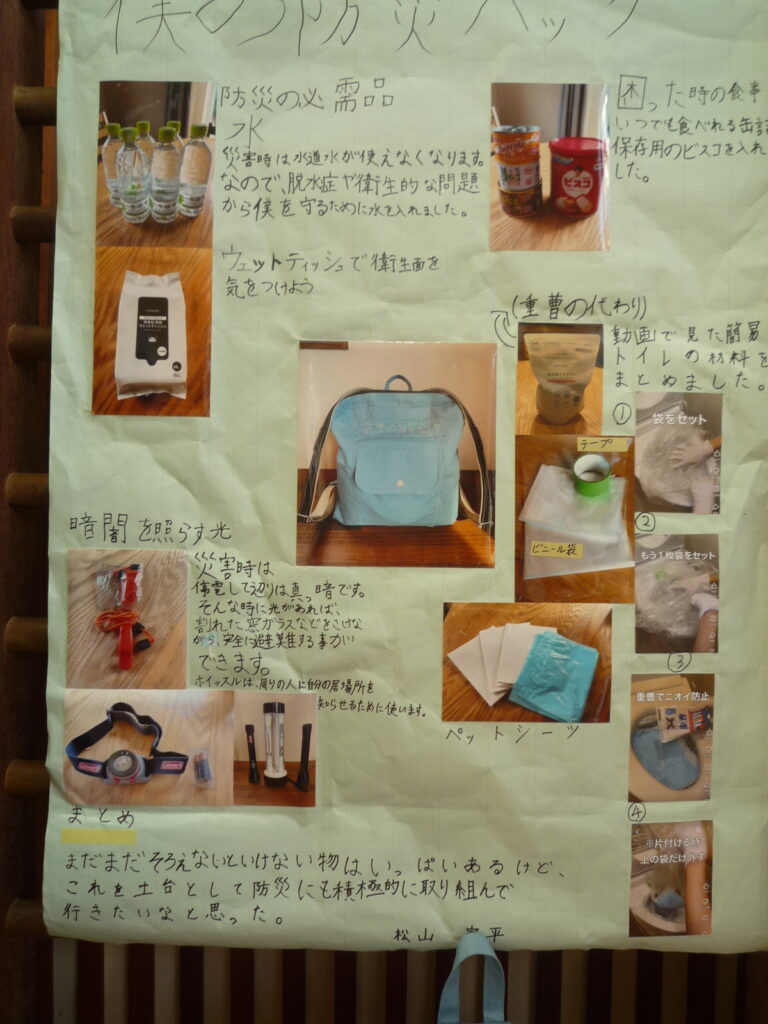 僕の防災バッグ
防災の必需品
水
災害時は水道水が使えなくなります。
なので、脱水症や衛生的な問題
から僕を守るために水を入れました。
ウェットティッシュで衛生面を
気をつけよう
困った時の食事
いつでも食べれる缶詰
保存用のビスコを入れ
した。
ビスコ
(重曹の代わり)
動画で見た簡易
トイレの材料を
まとめました。
テープ
ビニール袋
①
袋をセット
②
もう1枚袋をセット
③
重曹でニオイ防止
④
※片付ける時
上の袋だけ外す
ペットシーツ
暗闇を照らす光
災害時は
停電して辺りは真っ暗です。
そんな時に光があれば、
割れた窓ガラスなどをさけな
がら、安全に避難する事がい
できます。
ホイッスルは、周りの人に自分の居場所を
知らせるために使います。
Coleman
まとめ
まだまだそろえないといけない物はいっぱいあるけど、
これを土台として防災にも積極的に取り組んで
行きたいなと思った。
松山 平